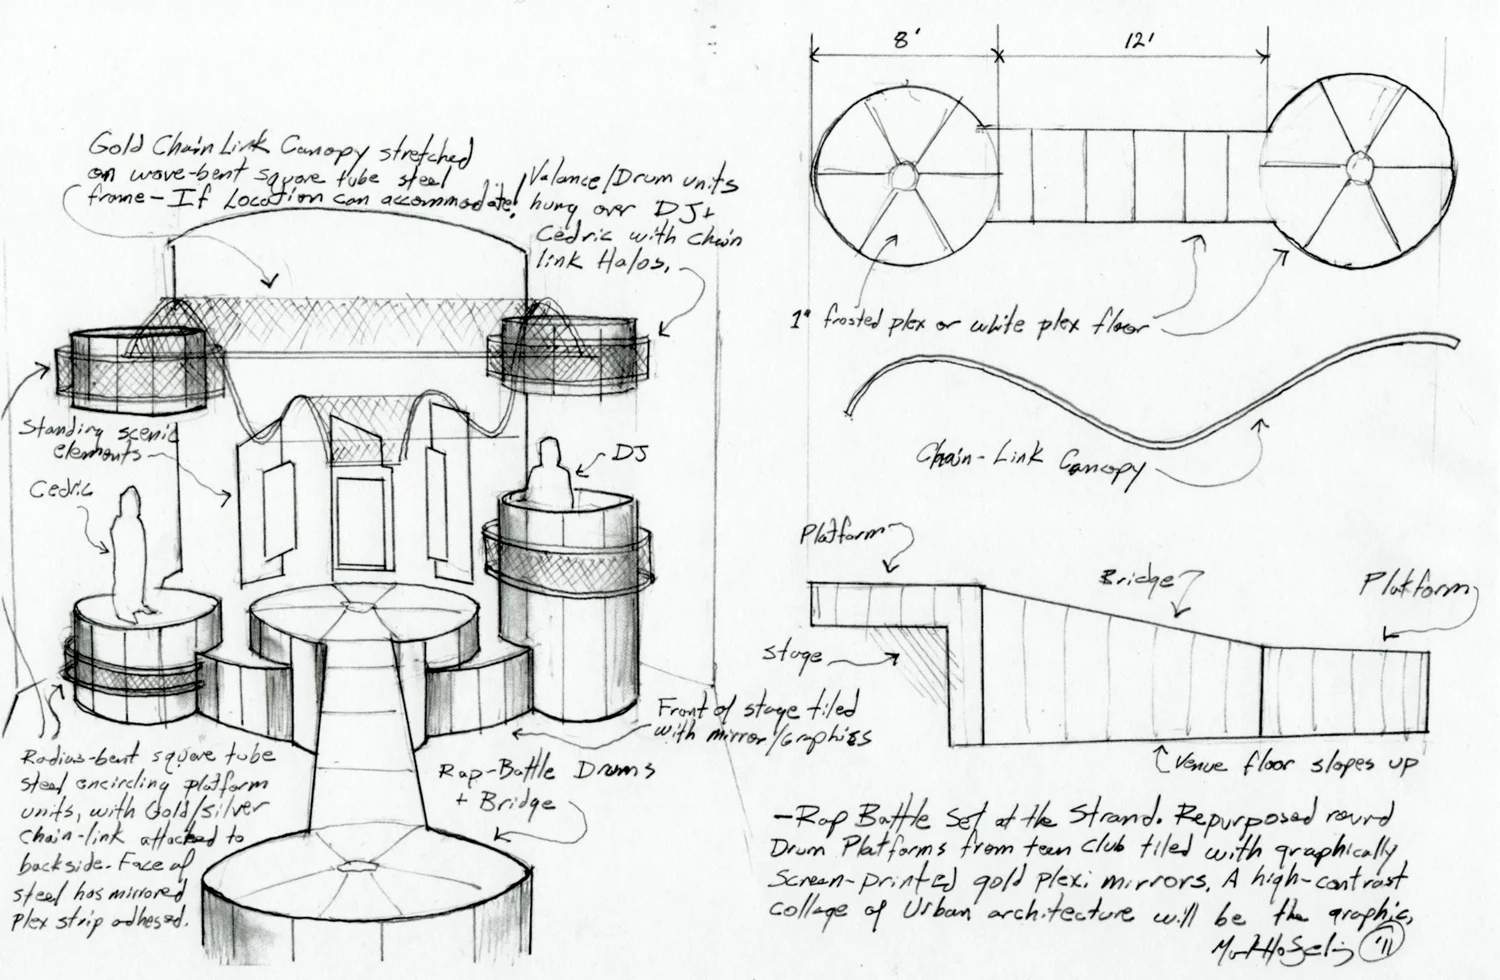 Gold Chain Link Canopy stretched
on wave-bent square tube steel
frame - If Location can accommodate!
Valance/Drum units
hung over DJ +
Cedric with chain
link Halos.
Standing scenic
elements
Cedric
DJ
Front of stage tiled
with mirror/Graphics
Rap-Battle Drums
+ Bridge
Radius-bent square tube
steel encircling platform
units, with Gold/silver
chain-link attached to
backside. Face of
steel has mirrored
Plex strip adhesed.
8'
12'
1" frosted plex or white plex floor
Chain-Link Canopy
Platform
Bridge
Platform
Stage
Venue floor slopes up
-Rap Battle Set at the Strand. Repurposed round
Drum Platforms from teen club tiled with graphically
Screen-printed gold plexi mirrors. A high-contrast
collage of Urban architecture will be the graphic.
'11